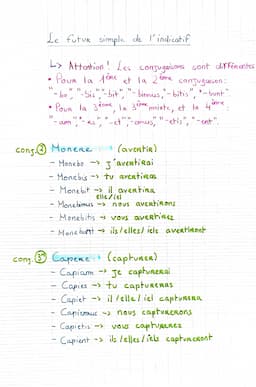 Le futur simple de l'indicatif
↳ Attention! Les conjugaisons sont différentes
• Pour la 1ère et la 2ème conjugaison:
"-bo", "-bis", "-bit", "-bimus", "-bitis", "-bunt".
• Pour la 3ème, la 3ème mixte, et la 4ème:
"-am", "-es", "-et", "-emus", "-etis", "-ent".
conj. ② Monere → (avertir)
- Monebo → j'avertirai
- Monebis → tu avertiras
- Monebit → il avertira
elle/iel
- Monebimus → nous avertirons
- Monebitis → vous avertirez
- Monebunt → ils/elles/iels avertiront
conj. Capere → (capturer)
- Capiam → je capturerai
- Capies → tu captureras
- Capiet → il/elle/iel capturera
- Capiemus → nous capturerons
- Capietis → vous capturerez
- Capient → ils/elles/iels captureront